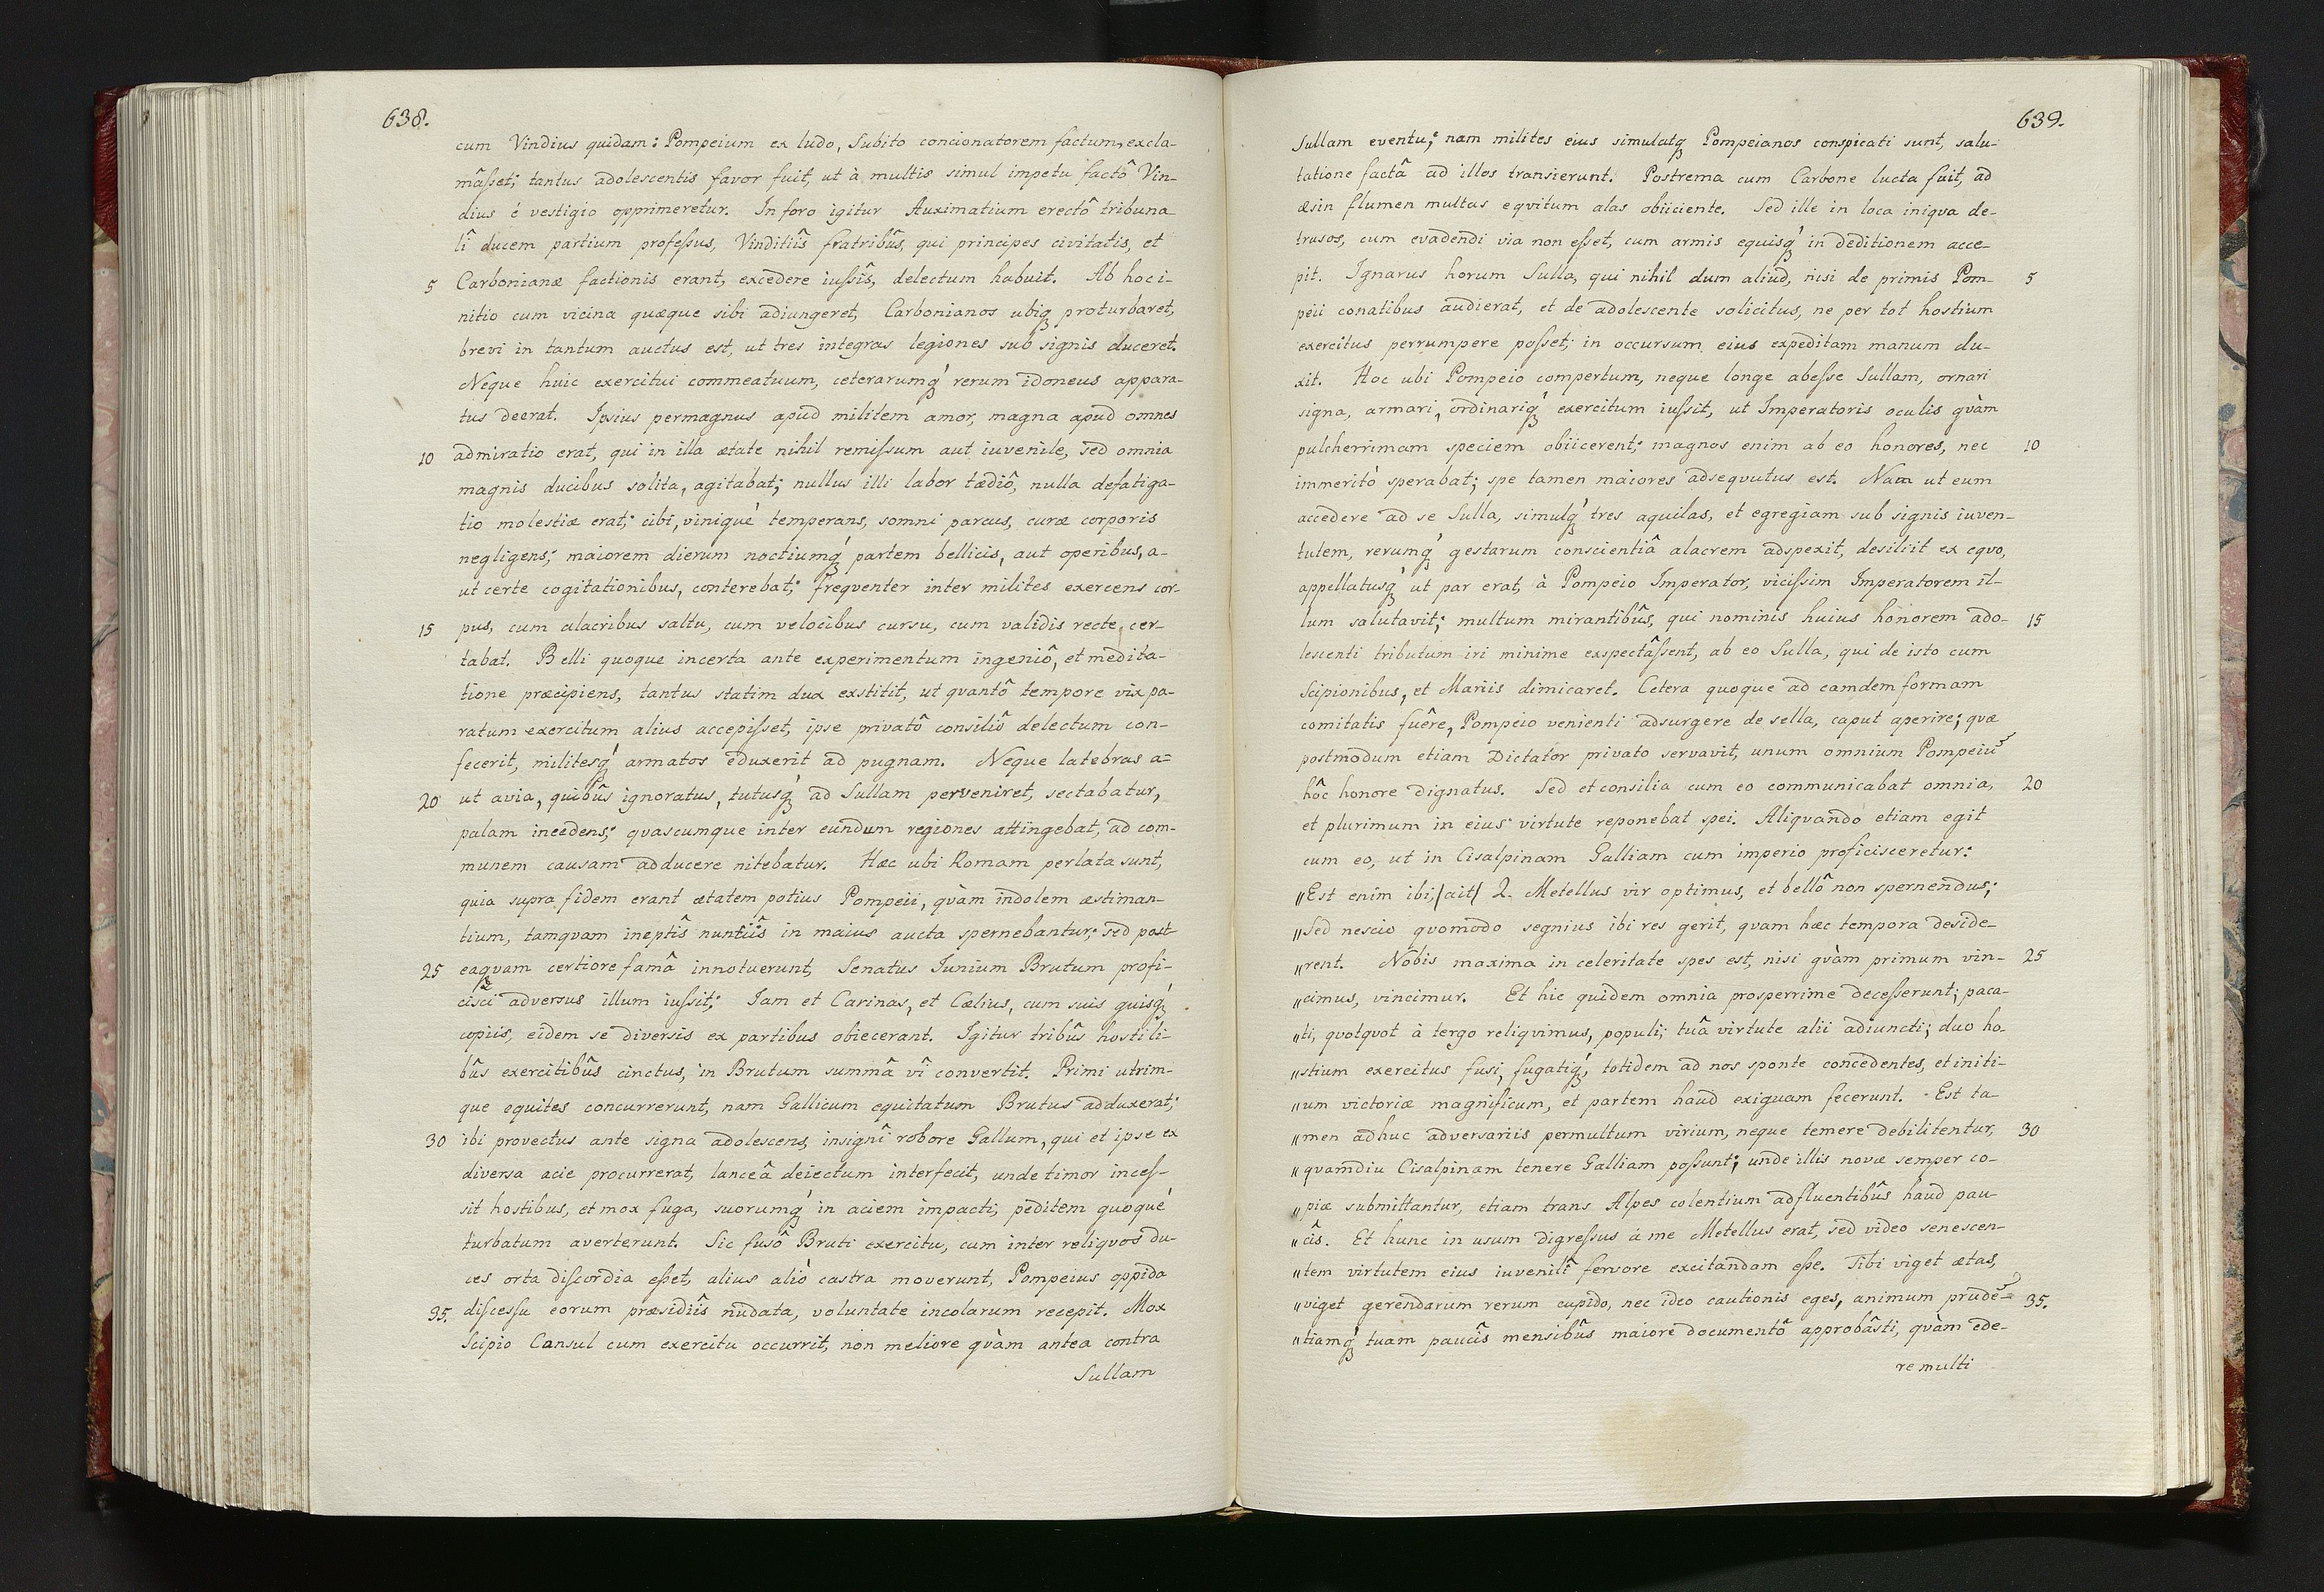 638.
cum Vindius quidam: Pompeium ex ludo, subito concionatorem factum, excla-
mâsset; tantus adolescentis favor fuit, ut à multis simul impetu factô Vin-
dius é vestigio opprimeretur. In foro igitur Auximatium erectô tribuna
lî ducem partium professus, Vinditiîs fratribûs, qui principes civitatis, et
5 Carbonianæ factionis erant, excedere iussîs, delectum habuit. Ab hoc i-
nitio cum vicina quæque sibi adiungeret, Carbonianos ubiqꝫ proturbaret,
brevi in tantum auctus est, ut tres integras legiones sub signis duceret.
Neque huic exercitui commeatuum, ceterarumqꝫ́ rerum idoneus appara-
tus deerat. Ipsius permagnus apud militem amor, magna apud omnes
10 admiratio erat, qui in illa ætate nihil remissum aut iuvenile, sed omnia
magnis ducibus solita, agitabat; nullus illi labor tædiô, nulla defatiga-
tio molestiæ erat; cibi, vinique´ temperans, somni parcus, curæ corporis
negligens; maiorem dierum noctiumqꝫ́ partem bellicis, aut operibus, a-
ut certe cogitationibus, conterebat; frequenter inter milites exercens cor-
15 pus, cum alacribus saltu, cum velocibus cursu, cum validis recte, cer-
tabat. Belli quoque incerta ante experimentum ingeniô, et medita-
tione præcipiens, tantus statim dux exstitit, ut quantô tempore vix pa-
ratum exercitum alius accepisset, ipse privatô consiliô delectum con-
fecerit, militesqꝫ́ armatos eduxerit ad pugnam. Neque latebras a=
20 ut avia, quibûs ignoratus, tutusqꝫ́ ad Sullam perveniret, sectabatur,
palam incedens; quascumque inter eundum regiones attingebat, ad com-
munem causam adducere nitebatur. Hæc ubi Romam perlata sunt,
quia supra fidem erant ætatem potius Pompeii, quàm indolem æstiman-
tium, tamquam ineptîs nuntiîs in maius aucta spernebantur; sed post
25 eaquam certiore famâ innotuerunt, Senatus Iunium Brutum profi-
cisci adversus illum iussit; Iam et Carinas, et Cælius, cum suis quisqꝫ́
copiis, eidem se diversis ex partibus obiecerant. Igitur tribûs hostili-
bûs exercitibûs cinctus, in Brutum summâ vî convertit. Primi utrim-
que equites concurrerunt, nam Gallicum equitatum Brutus adduxerat;
30 ibi provectus ante signa adolescens, insignî robore Gallum, qui et ipse ex
diversa acie procurrerat, lanceâ deiectum interfecit, unde timor inces-
sit hostibus, et mox fuga, suorumqꝫ́ in aciem impacti, peditem quoque´
turbatum averterunt. Sic fusô Bruti exercitu, cum inter reliquos du-
ces orta discordia esset, alius aliò castra moverunt, Pompeius oppida
35. discessu eorum præsidiîs nudata, voluntate incolarum recepit. Mox
Scipio Consul cum exercitu occurrit, non meliore quàm antea contra
Sullam
639.
Sullam eventu; nam milites eius simulatqꝫ Pompeianos conspicati sunt, salu-
tatione factâ ad illos transierunt. Postrema cum Carbone lucta fuit, ad
æsin flumen multas eqvitum alas obiiciente. Sed ille in loca iniqva de-
trusos, cum evadendi via non esset, cum armis equisqꝫ́ in deditionem acce-
pit. Ignarus horum Sulla, qui nihil dum aliud, nisi de primis Pom- 5
peii conatibus audierat, et de adolescente solicitus, ne per tot hostium
exercitus perrumpere posset; in occursum eius expeditam manum du-
xit. Hoc ubi Pompeio compertum, neque longe abesse Sullam, ornari
signa, armari, ordinariqꝫ́ exercitum iussit, ut Imperatoris oculis qvàm
pulcherrimam speciem obiicerent; magnos enim ab eo honores, nec 10
immeritò sperabat; spe tamen maiores adseqvutus est. Nam ut eum
accedere ad se Sulla, simulqꝫ́ tres aquilas, et egregiam sub signis iuven-
tutem, rerumqꝫ́ gestarum conscientiâ alacrem adspexit, desiliit ex eqvo,
appellatusqꝫ́ ut par erat, à Pompeio Imperator, vicissim Imperatorem il-
lum salutavit; multum mirantibûs, qui nominis huius honorem ado- 15
lescenti tributum iri minime exspectâssent, ab eo Sulla, qui de isto cum
Scipionibus, et Mariis dimicaret. Cetera quoque ad eamdem formam
comitatis fuêre, Pompeio venienti adsurgere de sella, caput aperire; qvæ
postmodum etiam Dictator privato servavit, unum omnium Pompeiu᷑
hôc honore dignatus. Sed et consilia cum eo communicabat omnia, 20
et plurimum in eius virtute reponebat spei. Aliqvando etiam egit
cum eo, ut in Cisalpinam Galliam cum imperio proficisceretur:
„Est enim ibi, /ait/ Q. Metellus vir optimus, et bellô non spernendus;
„Sed nescio qvomodo segnius ibi res gerit, qvam hæc tempora deside-
„rent. Nobis maxima in celeritate spes est, nisi qvàm primum vin- 25
„cimus, vincimur. Et hic quidem omnia prosperrime decesserunt; paca-
„ti, qvotqvot à tergo reliqvimus, populi; tuâ virtute alii adiuncti; duo ho-
„stium exercitus fusi, fugatiqꝫ́, totidem ad nos sponte concedentes, et initi-
„um victoriæ magnificum, et partem haud exiguam fecerunt. Est ta-
„men adhuc adversariis permultum virium, neque temere debilitentur, 30
„qvamdiu Cisalpinam tenere Galliam possunt; unde illis novæ semper co-
„piæ submittantur, etiam trans Alpes colentium adfluentibûs haud pau-
„cîs. Et hunc in usum digressus á me Metellus erat, sed video senescen-
„tem virtutem eius iuvenilî fervore excitandam esse. Tibi viget ætas,
„viget gerendarum rerum cupido, nec ideo cautionis eges, animum prude᷑- 35.
„tiamqꝫ́ tuam paucîs mensibûs maiore documentô approbâsti, qvàm ede-
re multi